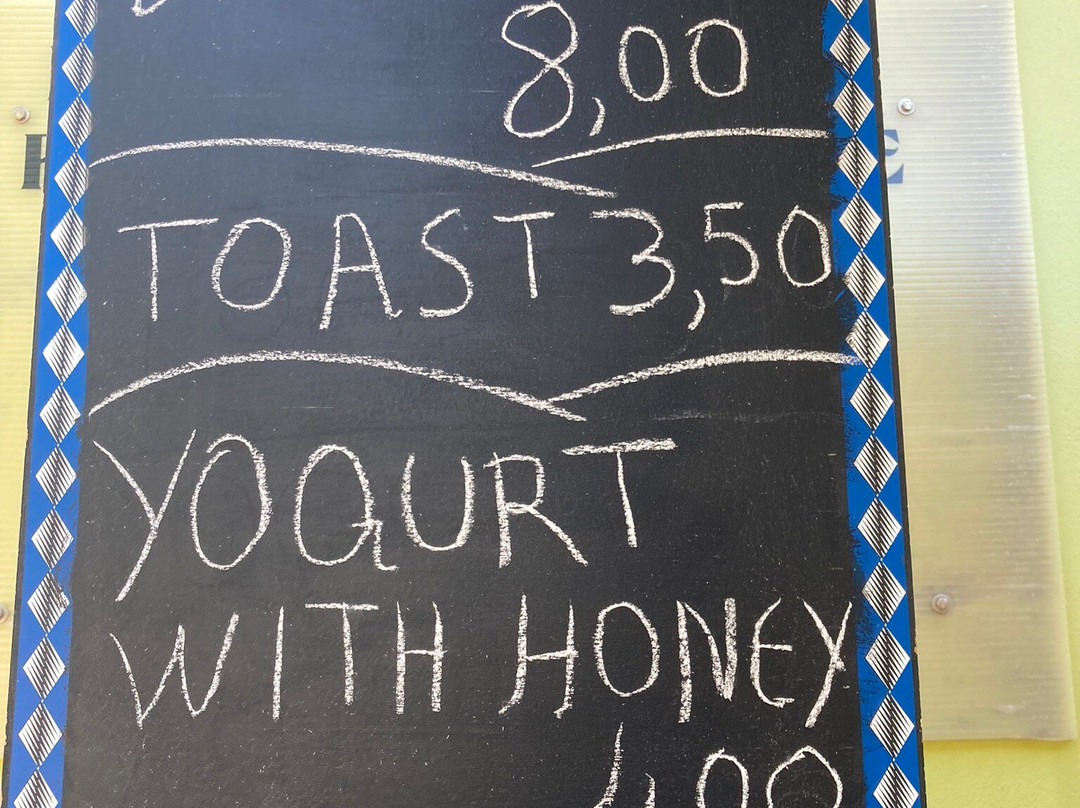 8,00
TOAST 3,50
YOGURT
WITH HONEY
4,00